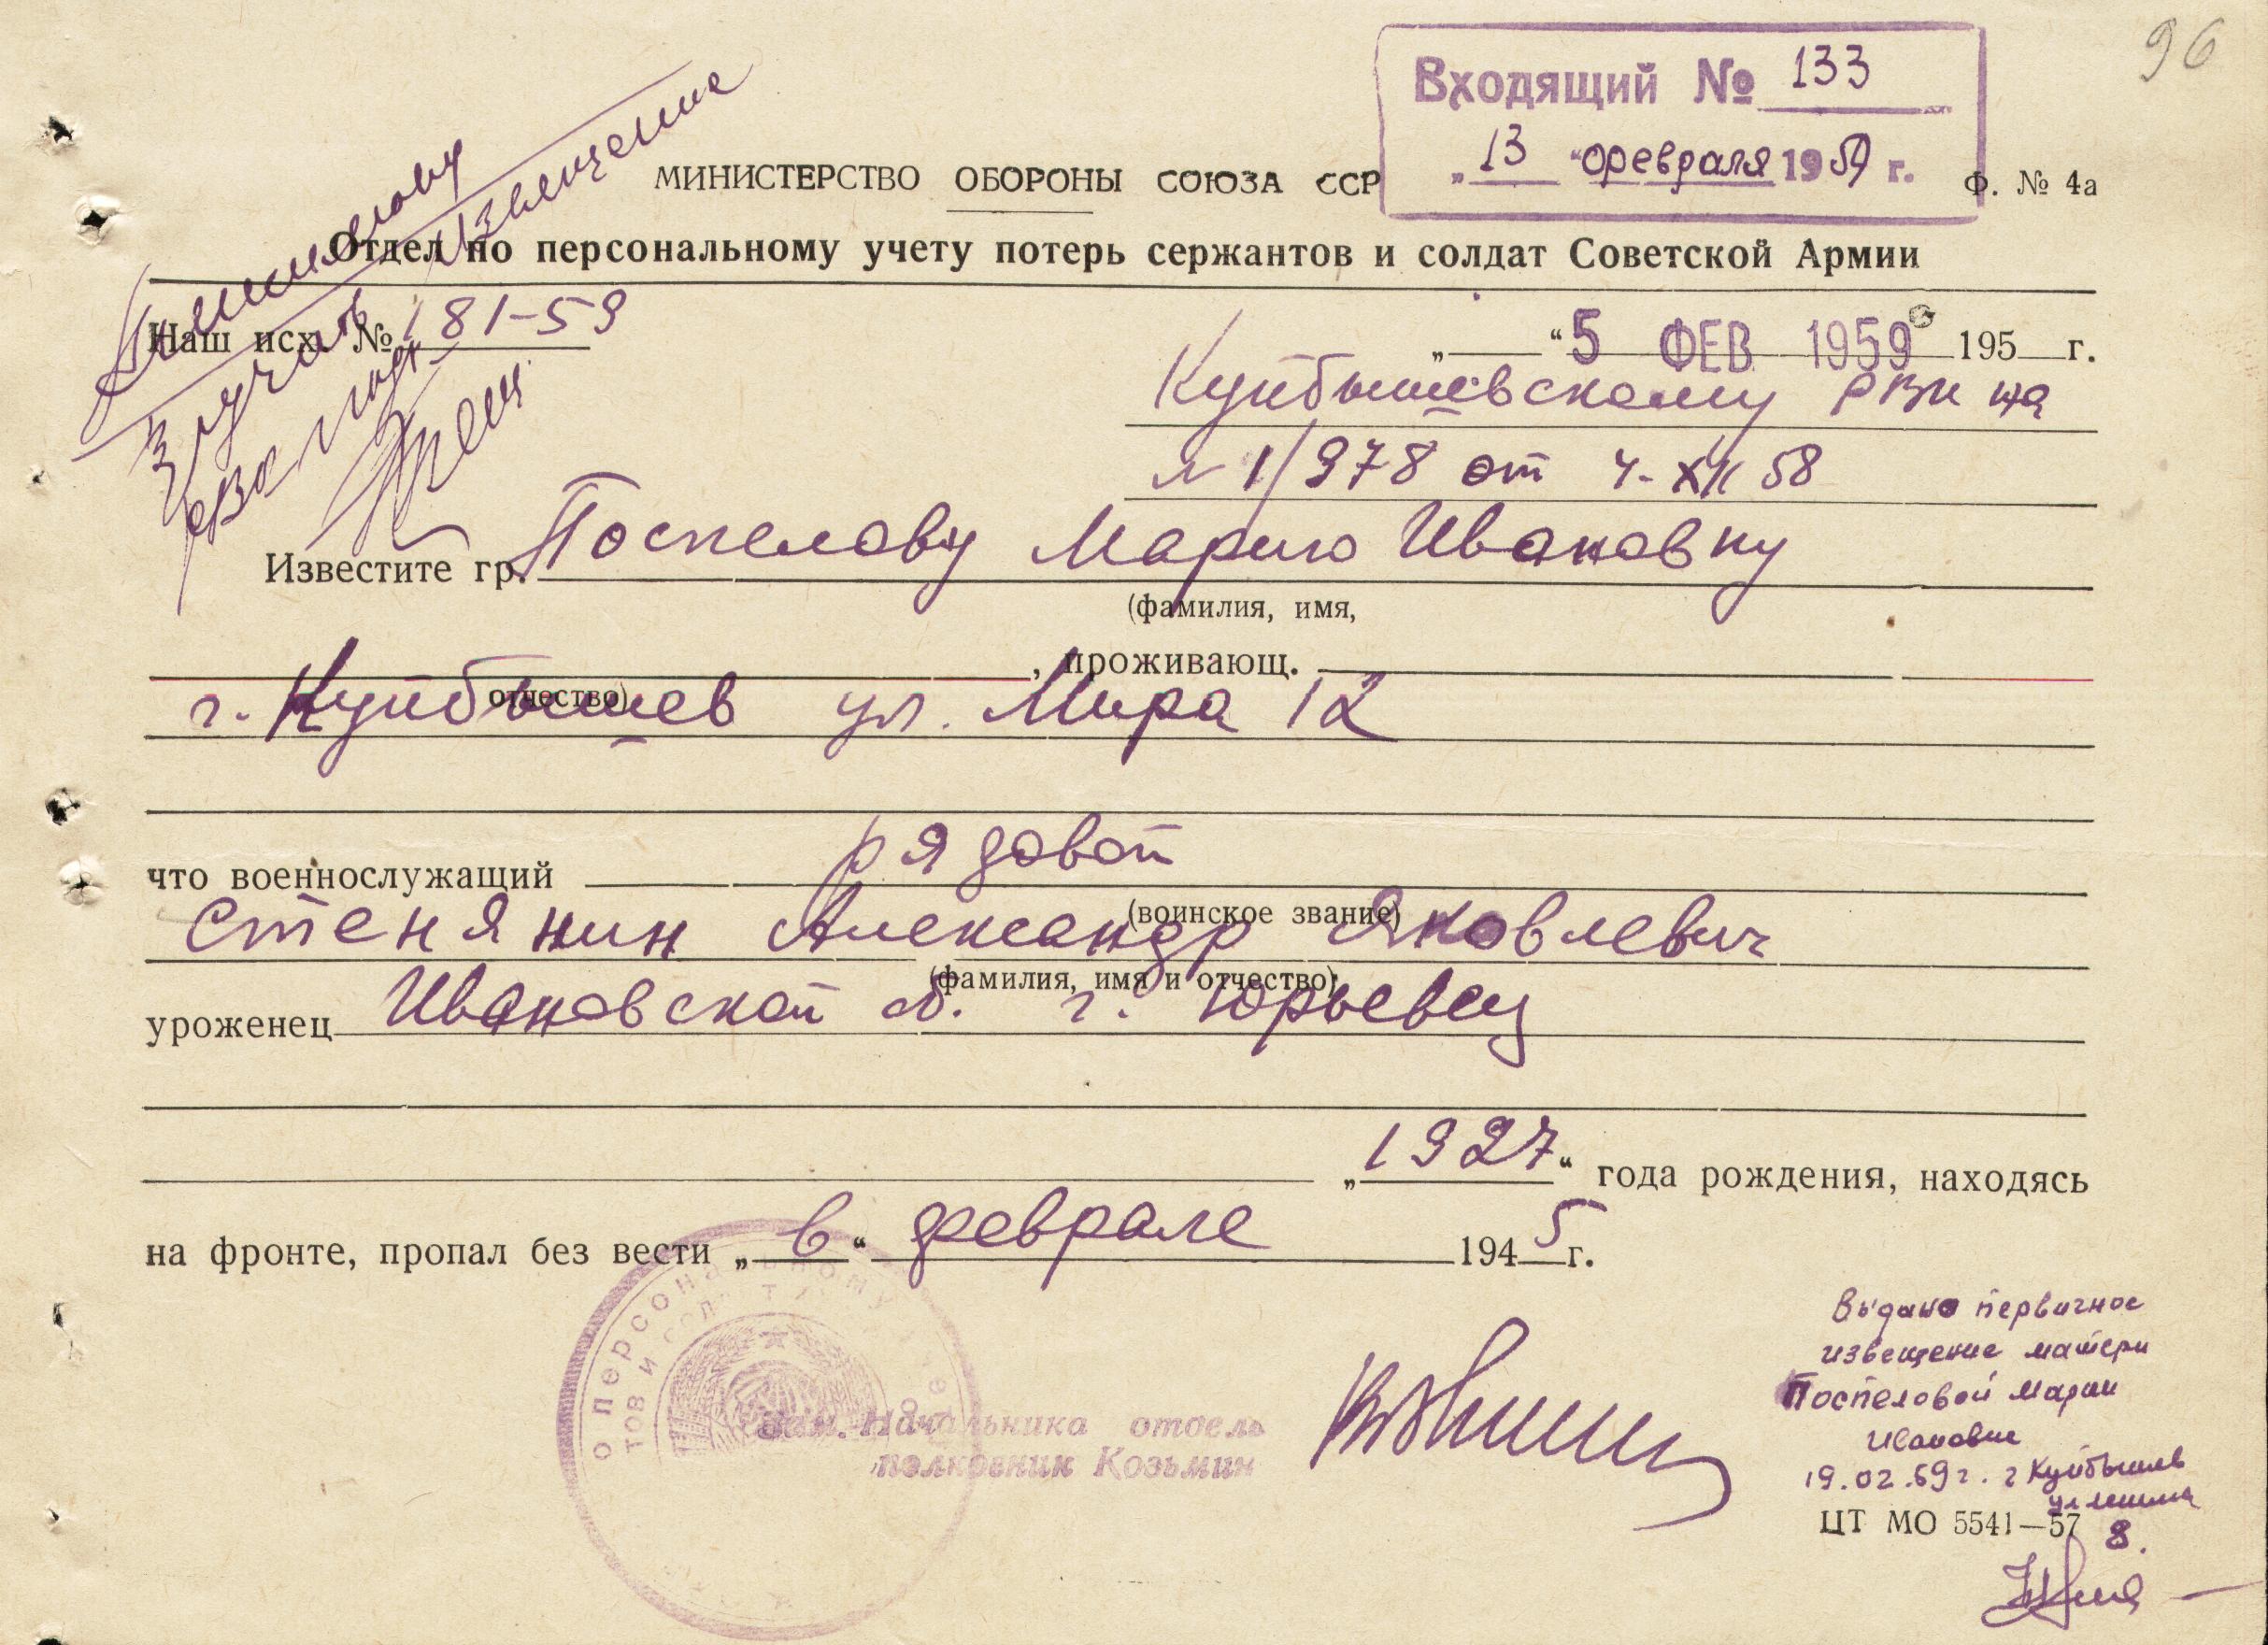 96
Входящий № 133
„13“ февраля 1959 г.
МИНИСТЕРСТВО ОБОРОНЫ СОЮЗА ССР
Ф. № 4а
Отдел по персональному учету потерь сержантов и солдат Советской Армии
извещение
Наш исх. № 181-59
„ “ 5 ФЕВ 1959 195 г.
Куйбышевскому РВК на
№ 1/978 от 4-XII 58
Известите гр. Поспелову Марию Ивановну
(фамилия, имя,
, проживающ.
отчество)
г. Куйбышев ул. Мира 12
что военнослужащий рядовой
(воинское звание)
Стенянин Александр Яковлевич
(фамилия, имя и отчество)
уроженец Ивановской о. г. Юрьевец
„1927“ года рождения, находясь
на фронте, пропал без вести „в“ феврале 1945 г.
о персональному
тов и солдат
Зам. Начальника отдела
полковник Козьмин
Выдано первичное
извещение матери
Поспеловой Марии
Ивановне
19.02.59г. г Куйбышев
ул Ленина
ЦТ МО 5541—57 8.